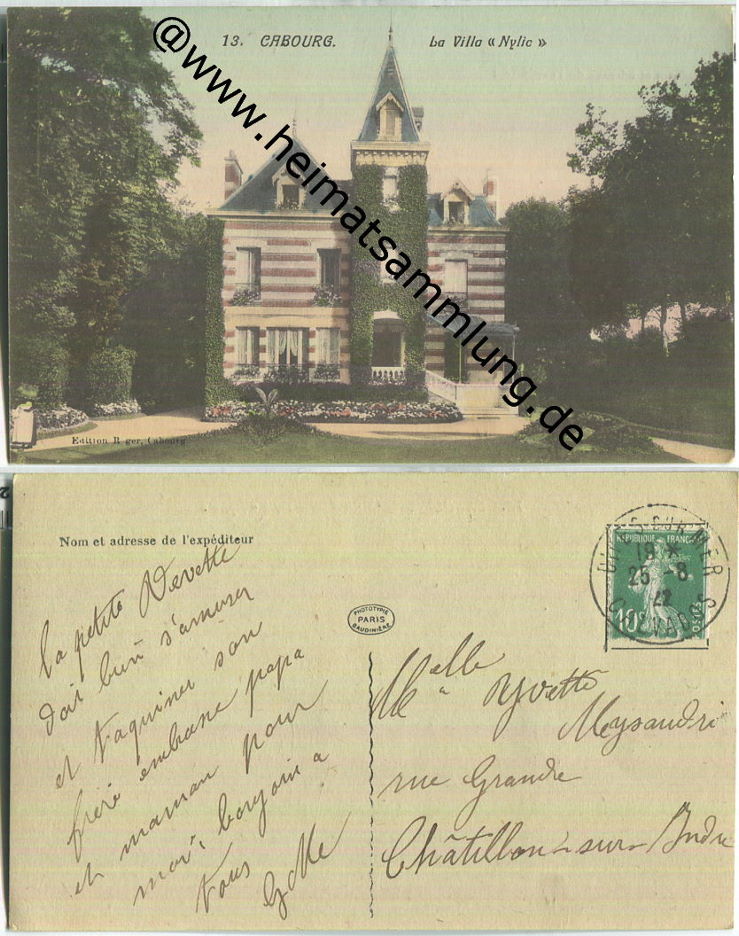 13. CABOURG. La Villa « Nylic »
@www.heimatsammlung.de
Edition R ger, Cabourg
Nom et adresse de l'expéditeur
PHOTOTYPIE
PARIS
BAUDINIÈRE
DIVES-SUR-MER
19
25 -8
22
CALVADOS
REPUBLIQUE FRANÇAISE
10c
POSTES
la petite Vevette
doit bien s'amuser
et taquiner son
frère embrasse papa
et maman pour
moi, bonjour a
tous
Melle Yvette
Meysandri
rue Grande
Châtillon-sur-Indre